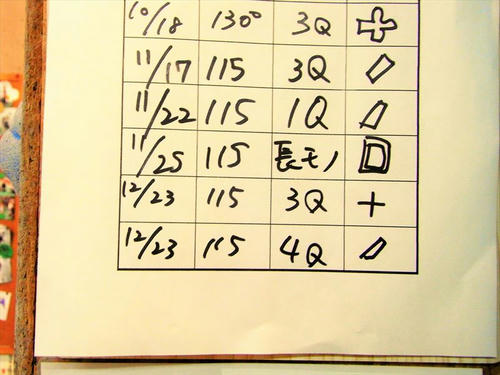 10/18 130° 3Q
11/17 115 3Q
11/22 115 1Q
11/25 115 長モノ
12/23 115 3Q +
12/23 115 4Q